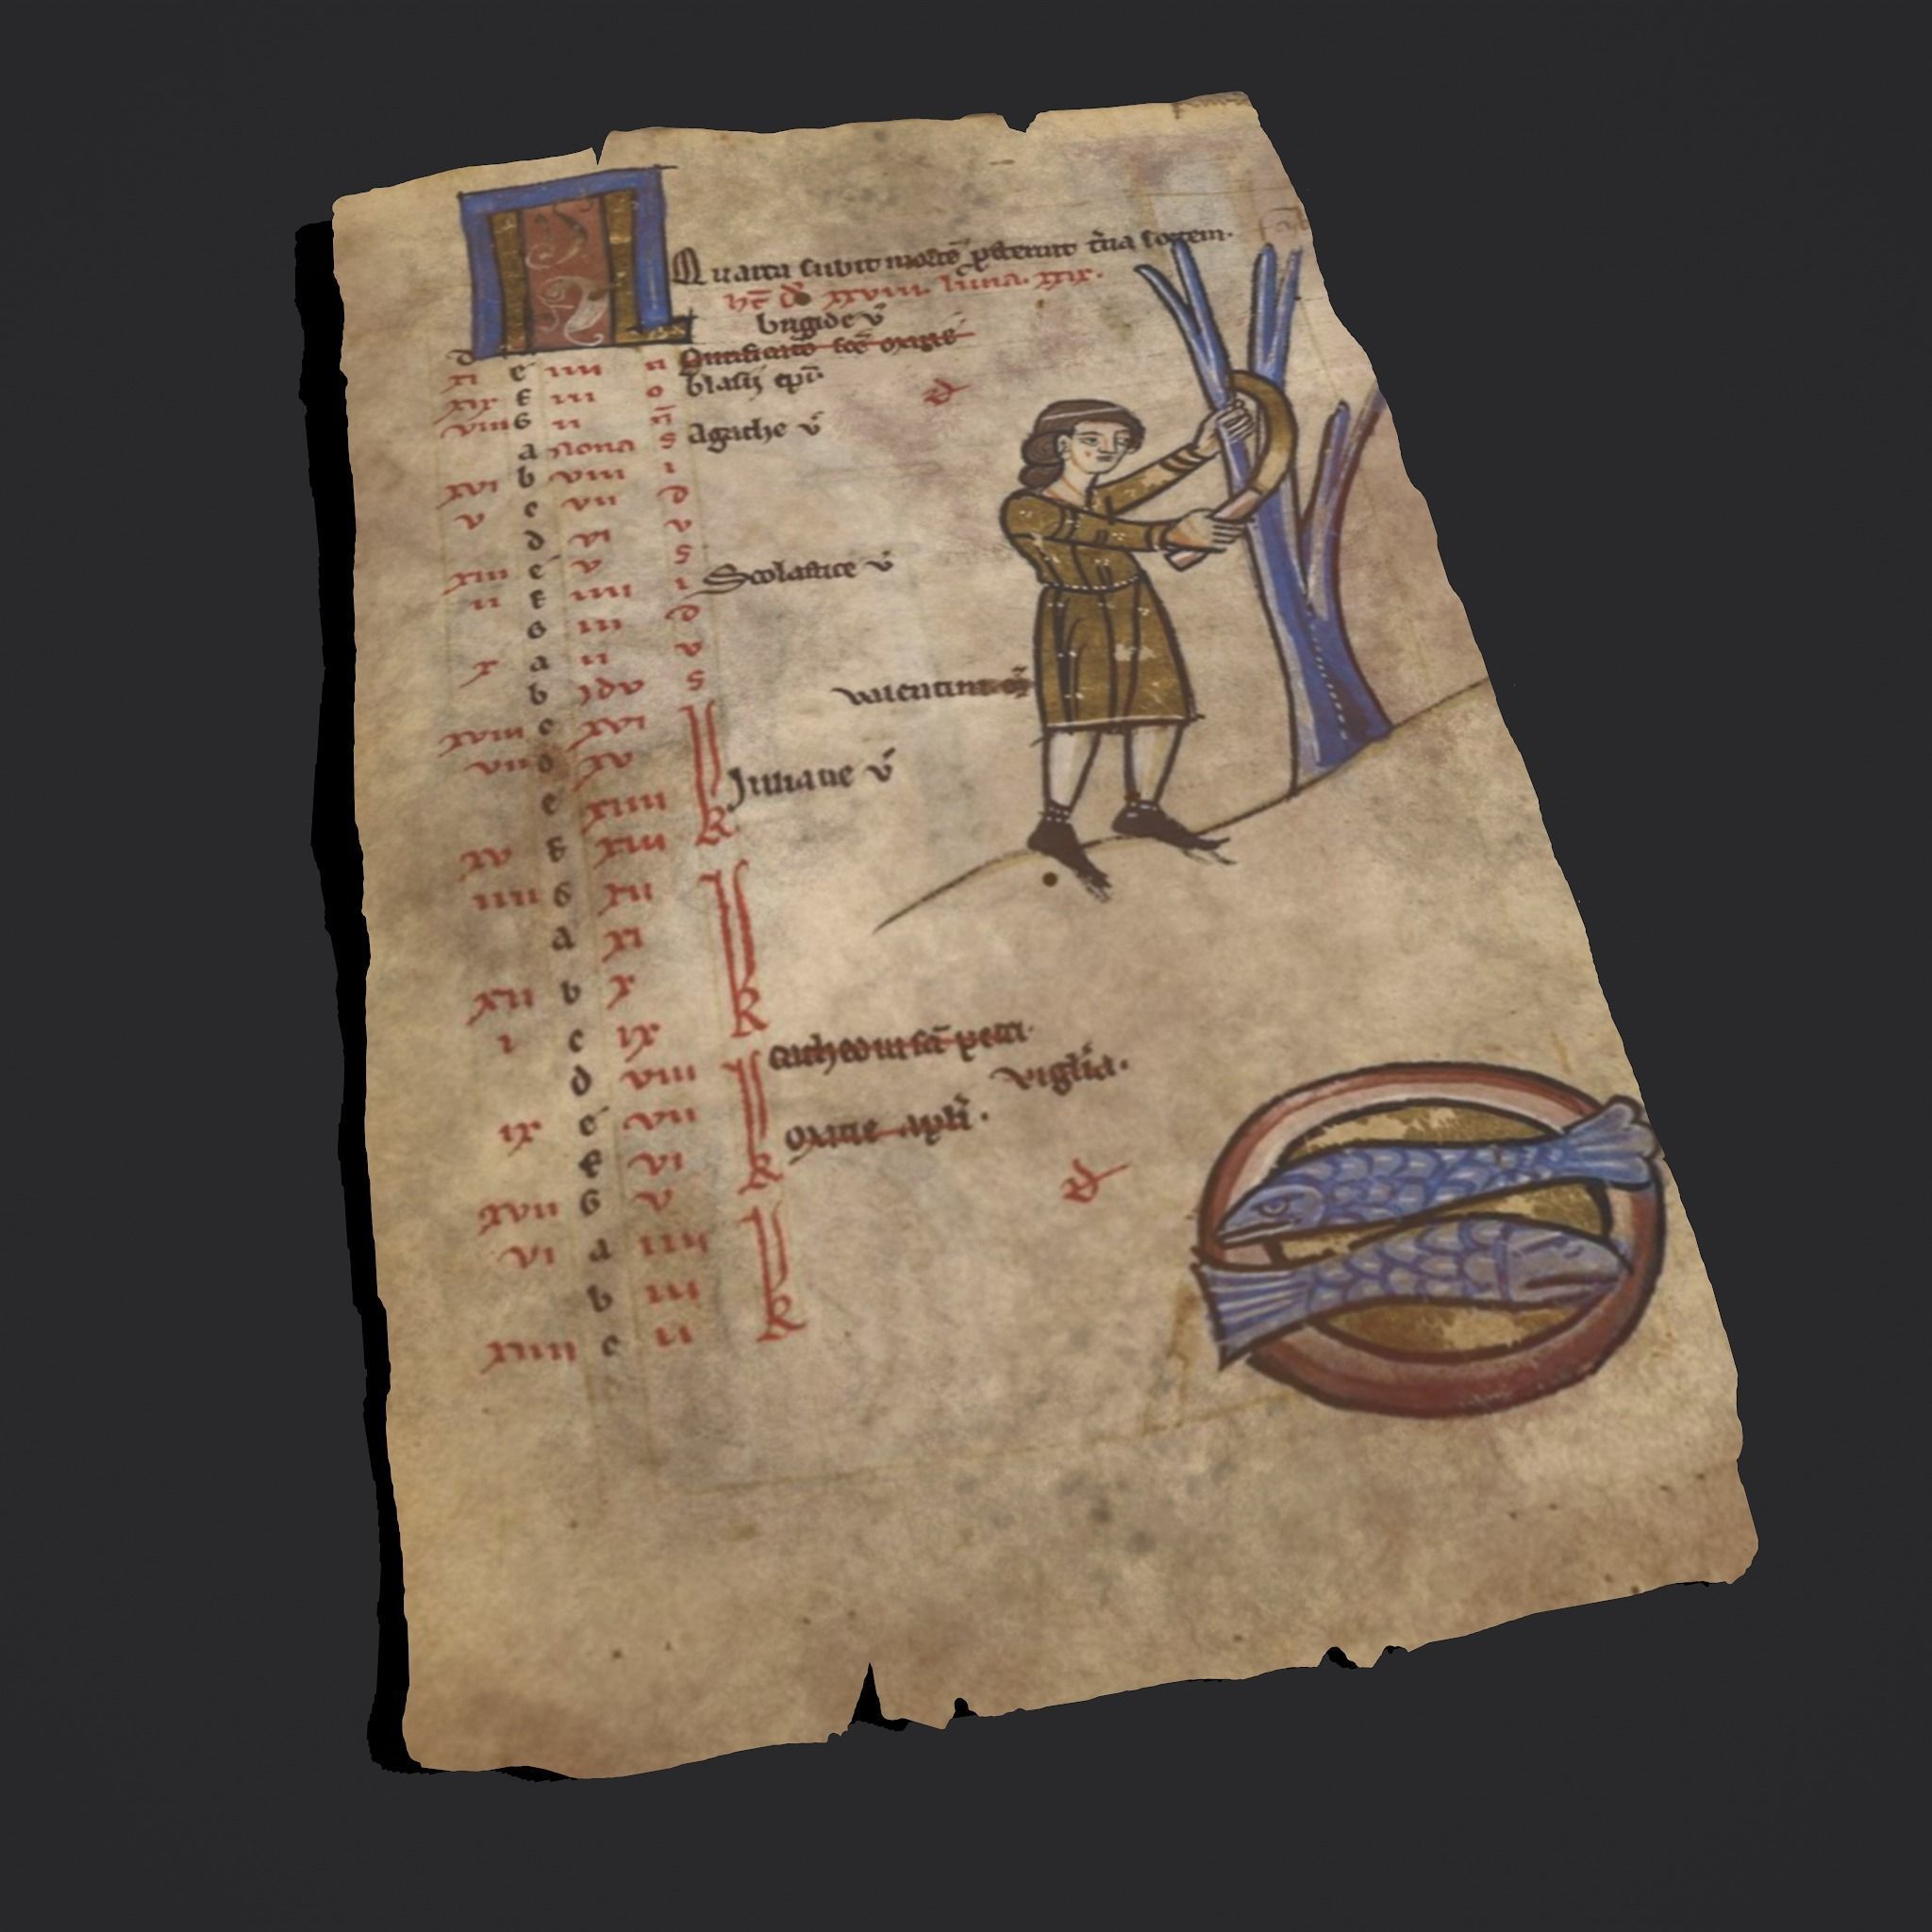 KL Quarta subit mortē p̄sternit t̄cia fortem.
h̄t d̄ xxviii. luna. xix.
d brigide v̄
xi e iiii n Purificatio sc̄e marie
xix f iii o blasij ep̄i
viii g ii n̄
a Nona s Agathe v̄
xvi b viii i
v c vii d
d vi v
xiii e v s Scolastice v̄
ii f iiii i
g iii d
x a ii v
b ydv s valentini
xviii c xvi k
vii d xv
e xiiii Juliane v̄
xv f xiii
iiii g xii k
a xi
xii b x
i c ix cathed sc̄i petri
d viii k vigilia.
ix e vii mathie apl̄i.
f vi
xvii g v k
vi a iiii
b iii
xiiii c ii